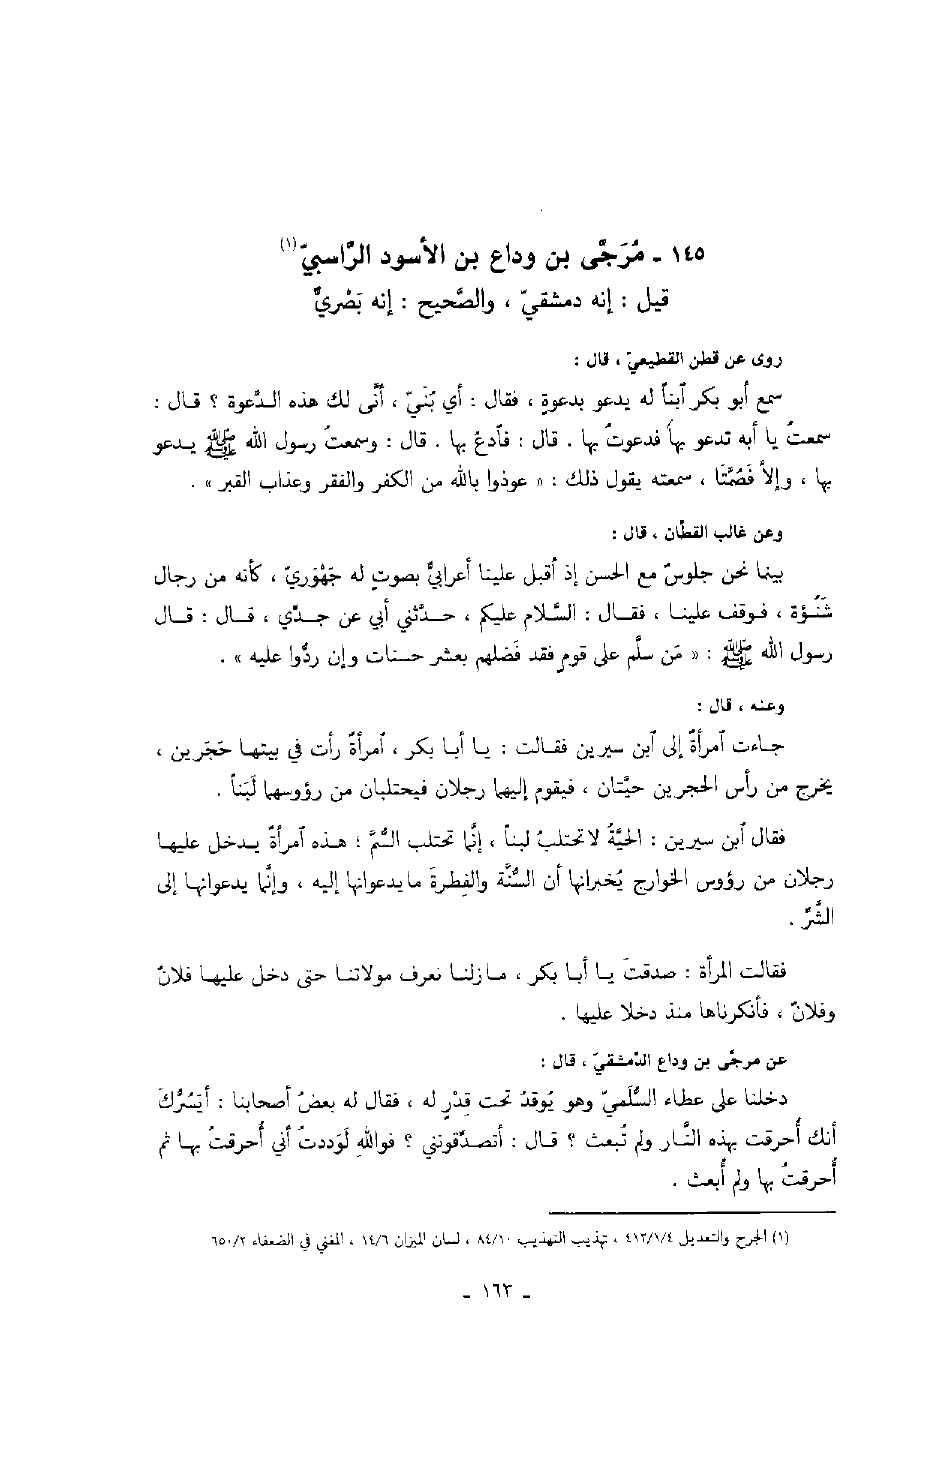 ١٤٥ ـ مُرَجَّى بن وداع بن الأسود الرَّاسبيّ(١)
قيل : إنه دمشقيّ ، والصَّحيح : إنه بَصْريٌّ
روى عن قطن القطيعيّ ، قال :
سمع أبو بكر ٱبناً له يدعو بدعوةٍ ، فقال : أي بُنَيّ ، أنَّى لك هذه الدَّعوة ؟ قال :
سمعتُ يا أبه تدعو بها فدعوتُ بها . قال : فٱدعُ بها . قال : وسمعتُ رسول الله ﷺ يدعو
بها ، وإلاَّ فَصُمَّتَا ، سمعته يقول ذلك : « عوذوا بالله من الكفر والفقر وعذاب القبر » .
وعن غالب القطَّان ، قال :
بينما نحن جلوسٌ مع الحسن إذ أقبل علينا أعرابيٌّ بصوتٍ له جَهْوَريّ ، كأنه من رجال
شَنُؤة ، فوقف علينا ، فقال : السَّلام عليكم ، حدَّثني أبي عن جدِّي ، قال : قال
رسول الله ﷺ : « مَن سلَّم على قومٍ فقد فَضَلهم بعشر حسنات وإن ردُّوا عليه » .
وعنه ، قال :
جاءت ٱمرأةٌ إلى ٱبن سيرين فقالت : يا أبا بكر ، ٱمرأةٌ رأت في بيتها حَجَرين ،
يخرج من رأس الحجرين حيَّتان ، فيقوم إليهما رجلان فيحتلبان من رؤوسهما لَبَناً .
فقال ٱبن سيرين : الحيَّةُ لا تحتلبُ لبناً ، إنَّما تحتلب السُّمَّ ؛ هذه ٱمرأةٌ يدخل عليها
رجلان من رؤوس الخوارج يُخبرانها أن السُّنَّة والفِطرةَ ما يدعوانها إليه ، وإنَّما يدعوانها إلى
الشَّرِّ .
فقالت المرأة : صدقتَ يا أبا بكر ، مازلنا نعرف مولاتنا حتى دخل عليها فلانٌ
وفلانٌ ، فأنكرناها منذ دخلا عليها .
عن مرجَّى بن وداع الدِّمشقيّ ، قال :
دخلنا على عطاء السُّلَميّ وهو يُوقدُ تحت قِدْرٍ له ، فقال له بعضُ أصحابنا : أيَسُرُّكَ
أنك أُحرقت بهذه النَّار ولم تُبعث ؟ قال : أتصدِّقونني ؟ فواللهِ لَوَددتُ أني أُحرقتُ بها ثم
أُحرقتُ بها ولم أُبعث .
(١) الجرح والتعديل ٤١٢/١/٤ ، تهذيب التهذيب ٨٤/١٠ ، لسان الميزان ١٤/٦ ، المغني في الضعفاء ٦٥٠/٢
ـ ١٦٣ ـ